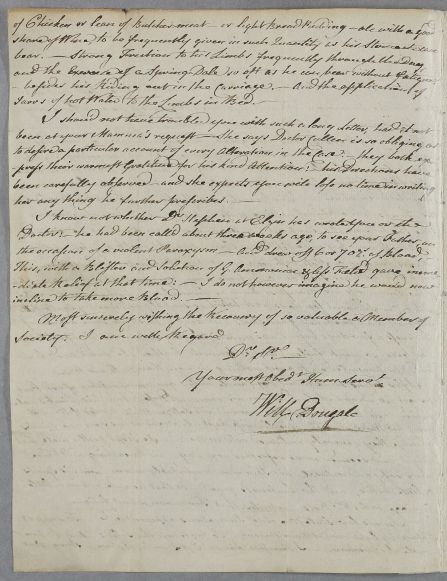 of Chicken or lean of Butcher meat – or light Bread Pudding – ale with a good
share of Wine to be frequently given in such Quantity as his Stomach can
bear. – Strong Frictions to his Limbs frequently through the Day
and the Exercise of a Spring Dale so oft as he can bear without Fatigue
– besides his Riding out in the Carriage. – And the application of
Jars of hot Water to the Limbs in Bed. –
I should not have troubled you with such a long letter had it not
been at your Mamma's request – She says Doctor Cullen is so obliging as
to desire a particular account of every Alteration in the Case – they both ex
press their warmest Gratitude for his kind Attention: his Directions have
been carefully observed – and she expects you will lose no time in writing
her any thing he further prescribes. –
I know not whether Dr. Stephen at Elgin has wrote you or the
Doctor – he had been called about three weeks ago, to see your Father, on
the accession of a violent Paroxysm – and drew off 6 or 7 oz. of Blood
This, with a Blister and Solution of G. Ammoniac & Assa Foetid gave imme
diate Relief at that time: – I do not however imagine he would now
incline to take more Blood. –
Most sincerely wishing the Recovery of so valuable a Member of
Society, I am with Regard
Dr. Sir
Your most Obedt. Hum. Servt.
Will: Dougal